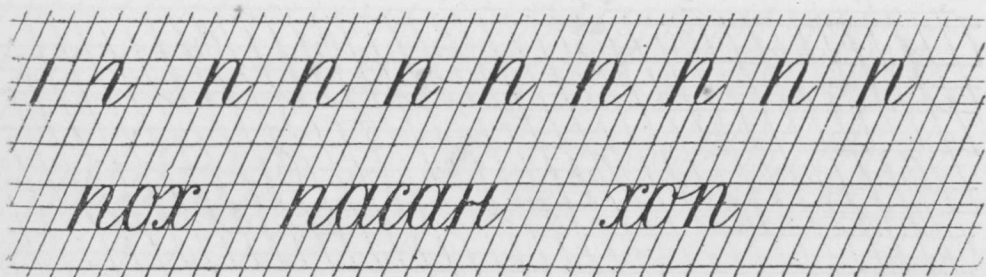 г п п п п п п п п п п
пох пасан хоп